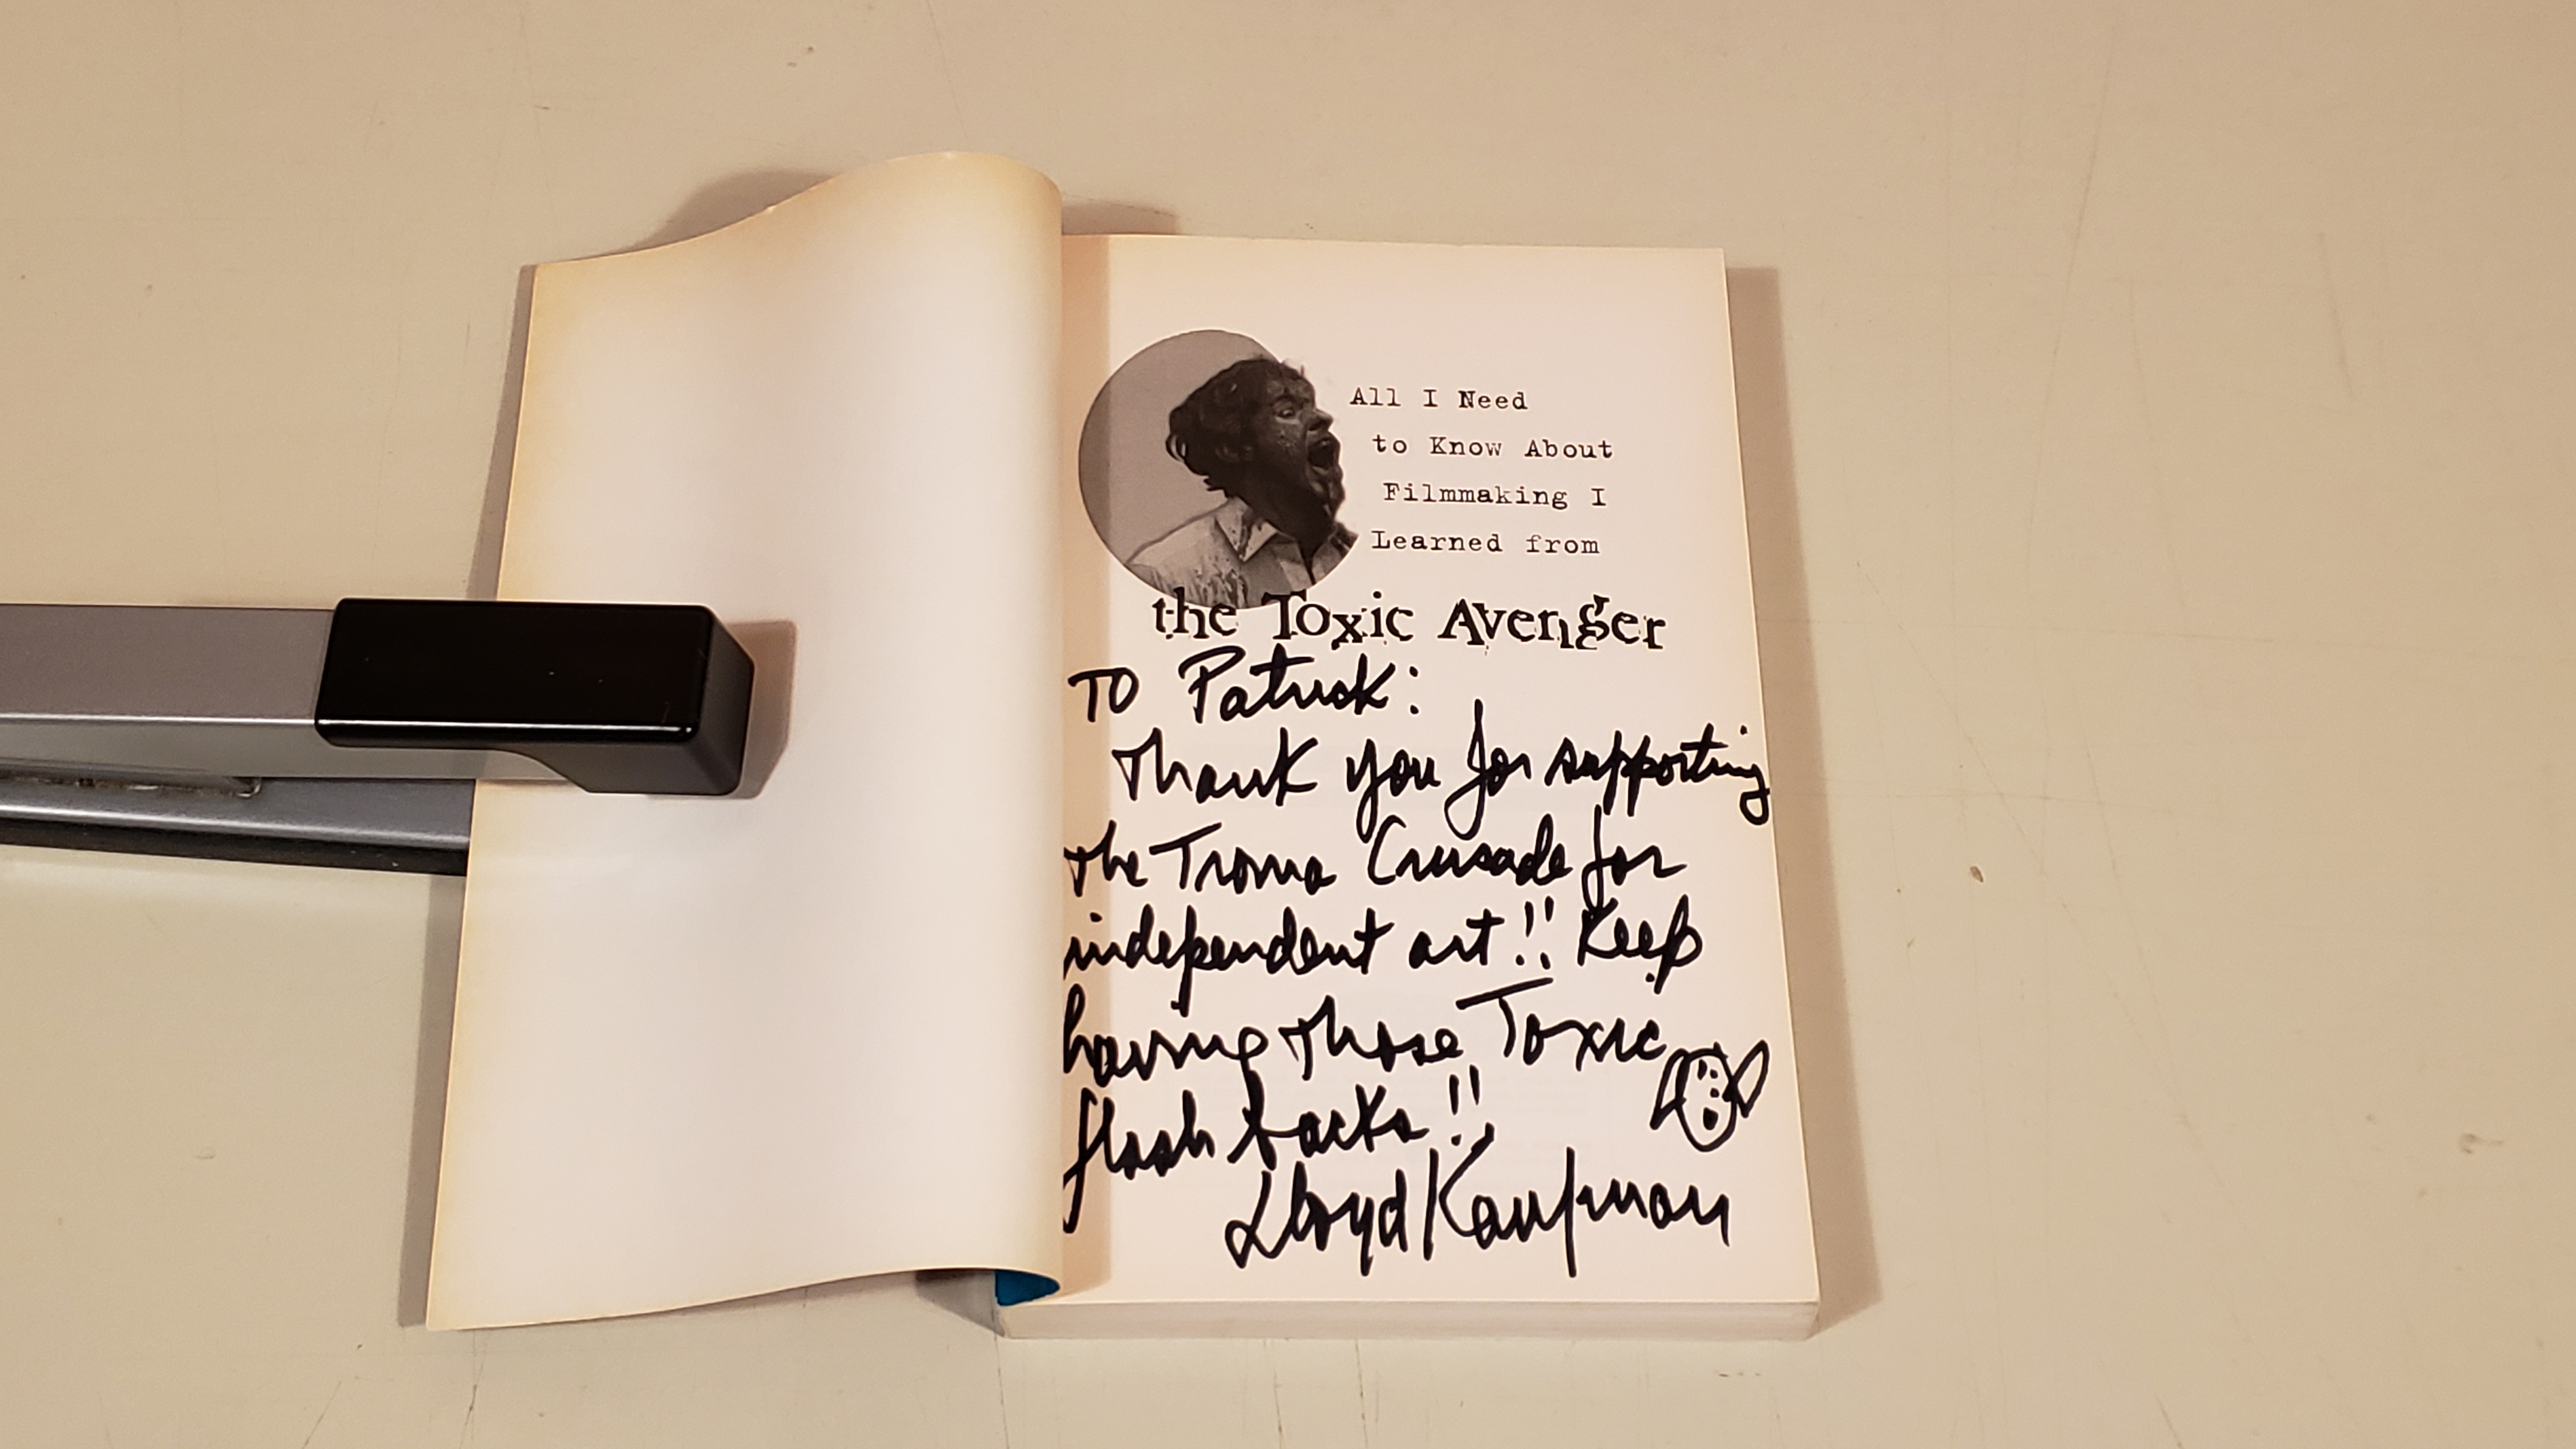 All I Need
to Know About
Filmmaking I
Learned from
the Toxic Avenger
TO Patrick:
Thank you for supporting
the Troma Crusade for
independent art!! Keep
having those Toxic
flash backs!!
Lloyd Kaufman